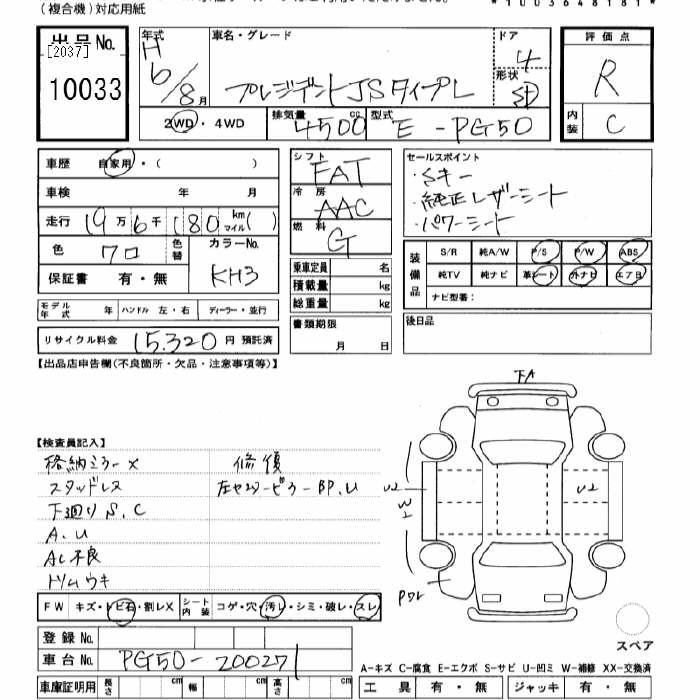 (複合機)対応用紙
*1003648181*
出品 No.
[2037]
10033
年式
H
6/8月
車名・グレード
プレジデントJSタイプL
ドア
4
形状
SD
2WD・4WD
排気量
4500 cc
型式
E-PG50
評価点
R
内装
C
車歴 自家用・( )
車検 年 月
走行 19万6千180 km マイル( )
色 クロ
色替
カラーNo.
KH3
保証書 有・無
モデル年式 年 ハンドル 左・右 ディーラー・並行
リサイクル料金 15,320 円 預託済
シフト
FAT
冷房
AAC
燃料
G
乗車定員 名
積載量 kg
総重量 kg
書類期限
月 日
セールスポイント
・Sキー
・純正レザーシート
・パワーシート
装備品
S/R 純A/W P/S P/W ABS
純TV 純ナビ 革シート 外ナビ エアB
ナビ型番:
後日品
【出品店申告欄(不良箇所・欠品・注意事項等)】
【検査員記入】
格納ミラーX
スタッドレス
下廻りS.C
A.U
AC不良
トリムウキ
修復
左センターピラーBP.U
下A
U2
W1
U2
FW キズ・トビ石・割レX
シート内装 コゲ・穴・汚レ・シミ・破レ・スレ
登録 No.
車台 No. PG50-200271
車庫証明用 長さ cm 幅 cm 高さ cm
スペア
A-キズ C-腐食 E-エクボ S-サビ U-凹ミ W-補修 XX-交換済
工具 有・無 ジャッキ 有・無